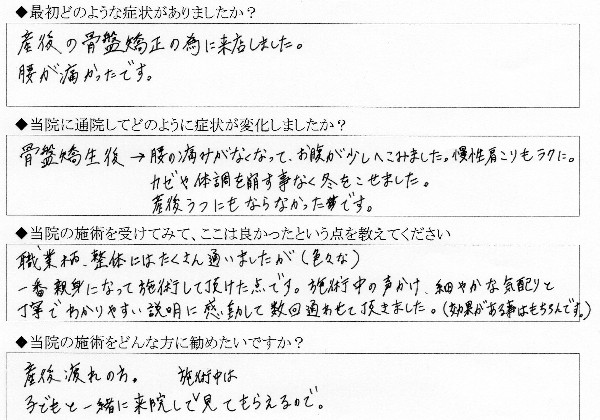 ◆最初どのような症状がありましたか？
産後の骨盤矯正の為に来店しました。
腰が痛かったです。
◆当院に通院してどのように症状が変化しましたか？
骨盤矯生後→腰の痛みがなくなって、お腹が少しへこみました。慢性肩こりもラクに。
カゼや体調を崩す事なく冬をこせました。
産後うつにもならなかったです。
◆当院の施術を受けてみて、ここは良かったという点を教えてください
職業柄、整体にはたくさん通いましたが（色々な）
一番親身になって施術して頂けた点です。施術中の声かけ、細やかな気配りと
丁寧でわかりやすい説明に感動して数回通わせて頂きました。（効果がある事はもちろんです。）
◆当院の施術をどんな方に勧めたいですか？
産後疲れの方。 施術中は
子どもと一緒に来院しで見てもらえるので。